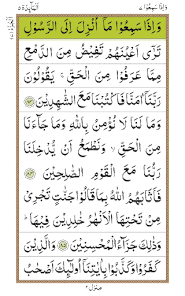 وَإِذَا سَمِعُوْا ٧
ٱلْمَآئِدَة ٥
وَإِذَا سَمِعُوْا مَآ أُنْزِلَ إِلَى الرَّسُوْلِ
تَرٰٓى أَعْيُنَهُمْ تَفِيْضُ مِنَ الدَّمْعِ
مِمَّا عَرَفُوْا مِنَ الْحَقِّ ۚ يَقُوْلُوْنَ
رَبَّنَآ اٰمَنَّا فَاكْتُبْنَا مَعَ الشّٰهِدِيْنَ ﴿٨٣﴾
وَمَا لَنَا لَا نُؤْمِنُ بِاللّٰهِ وَمَا جَآءَنَا
مِنَ الْحَقِّ ۙ وَنَطْمَعُ أَنْ يُّدْخِلَنَا
رَبُّنَا مَعَ الْقَوْمِ الصّٰلِحِيْنَ ﴿٨٤﴾
فَأَثَابَهُمُ اللّٰهُ بِمَا قَالُوْا جَنّٰتٍ تَجْرِيْ
مِنْ تَحْتِهَا الْأَنْهٰرُ خٰلِدِيْنَ فِيْهَا ۚ
وَذٰلِكَ جَزَآءُ الْمُحْسِنِيْنَ ﴿٨٥﴾ وَالَّذِيْنَ
كَفَرُوْا وَكَذَّبُوْا بِاٰيٰتِنَآ أُولٰٓئِكَ أَصْحٰبُ
منزل ٢